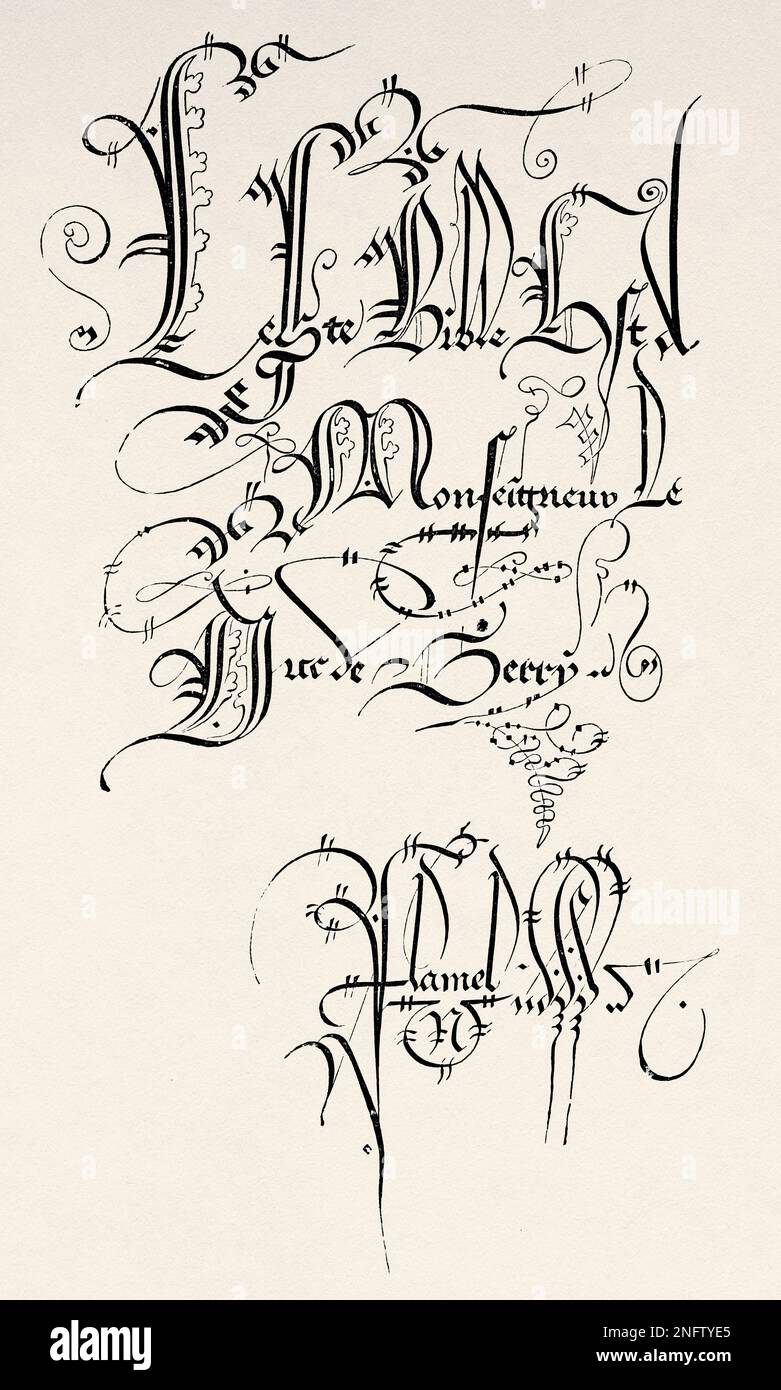 Leste Bible Est a
Monseigneur Le
Duc de Berry
Flamel
N
alamy
Image ID: 2NFTYE5
www.alamy.com